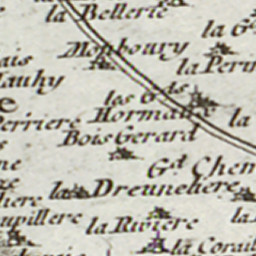 la Bellerie
la G
Monboury
ais
la Perin
auhy
les Gds
Hormans
la
erriere
Bois Gerard
ne
Gd Chen
la Dreunehere
iere
upillere
la Riviere
la Corail